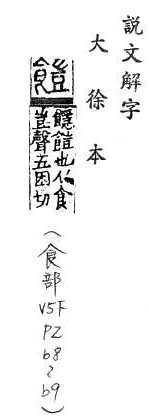 説文解字
大徐本
䭓
䭡䭓也从食
豈聲五困切
(食部 V5F P2 b8~b9)